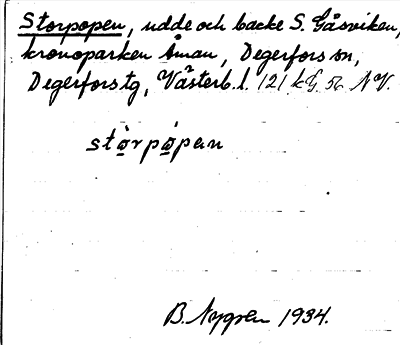 Storpopen, udde och backe S. Gåsviken,
kronoparken Åman, Degerfors sn,
Degerfors tg, Västerb. l. 121 kG. 56 N.V.
stò̱rpò̱pen
B. Nygren 1934.